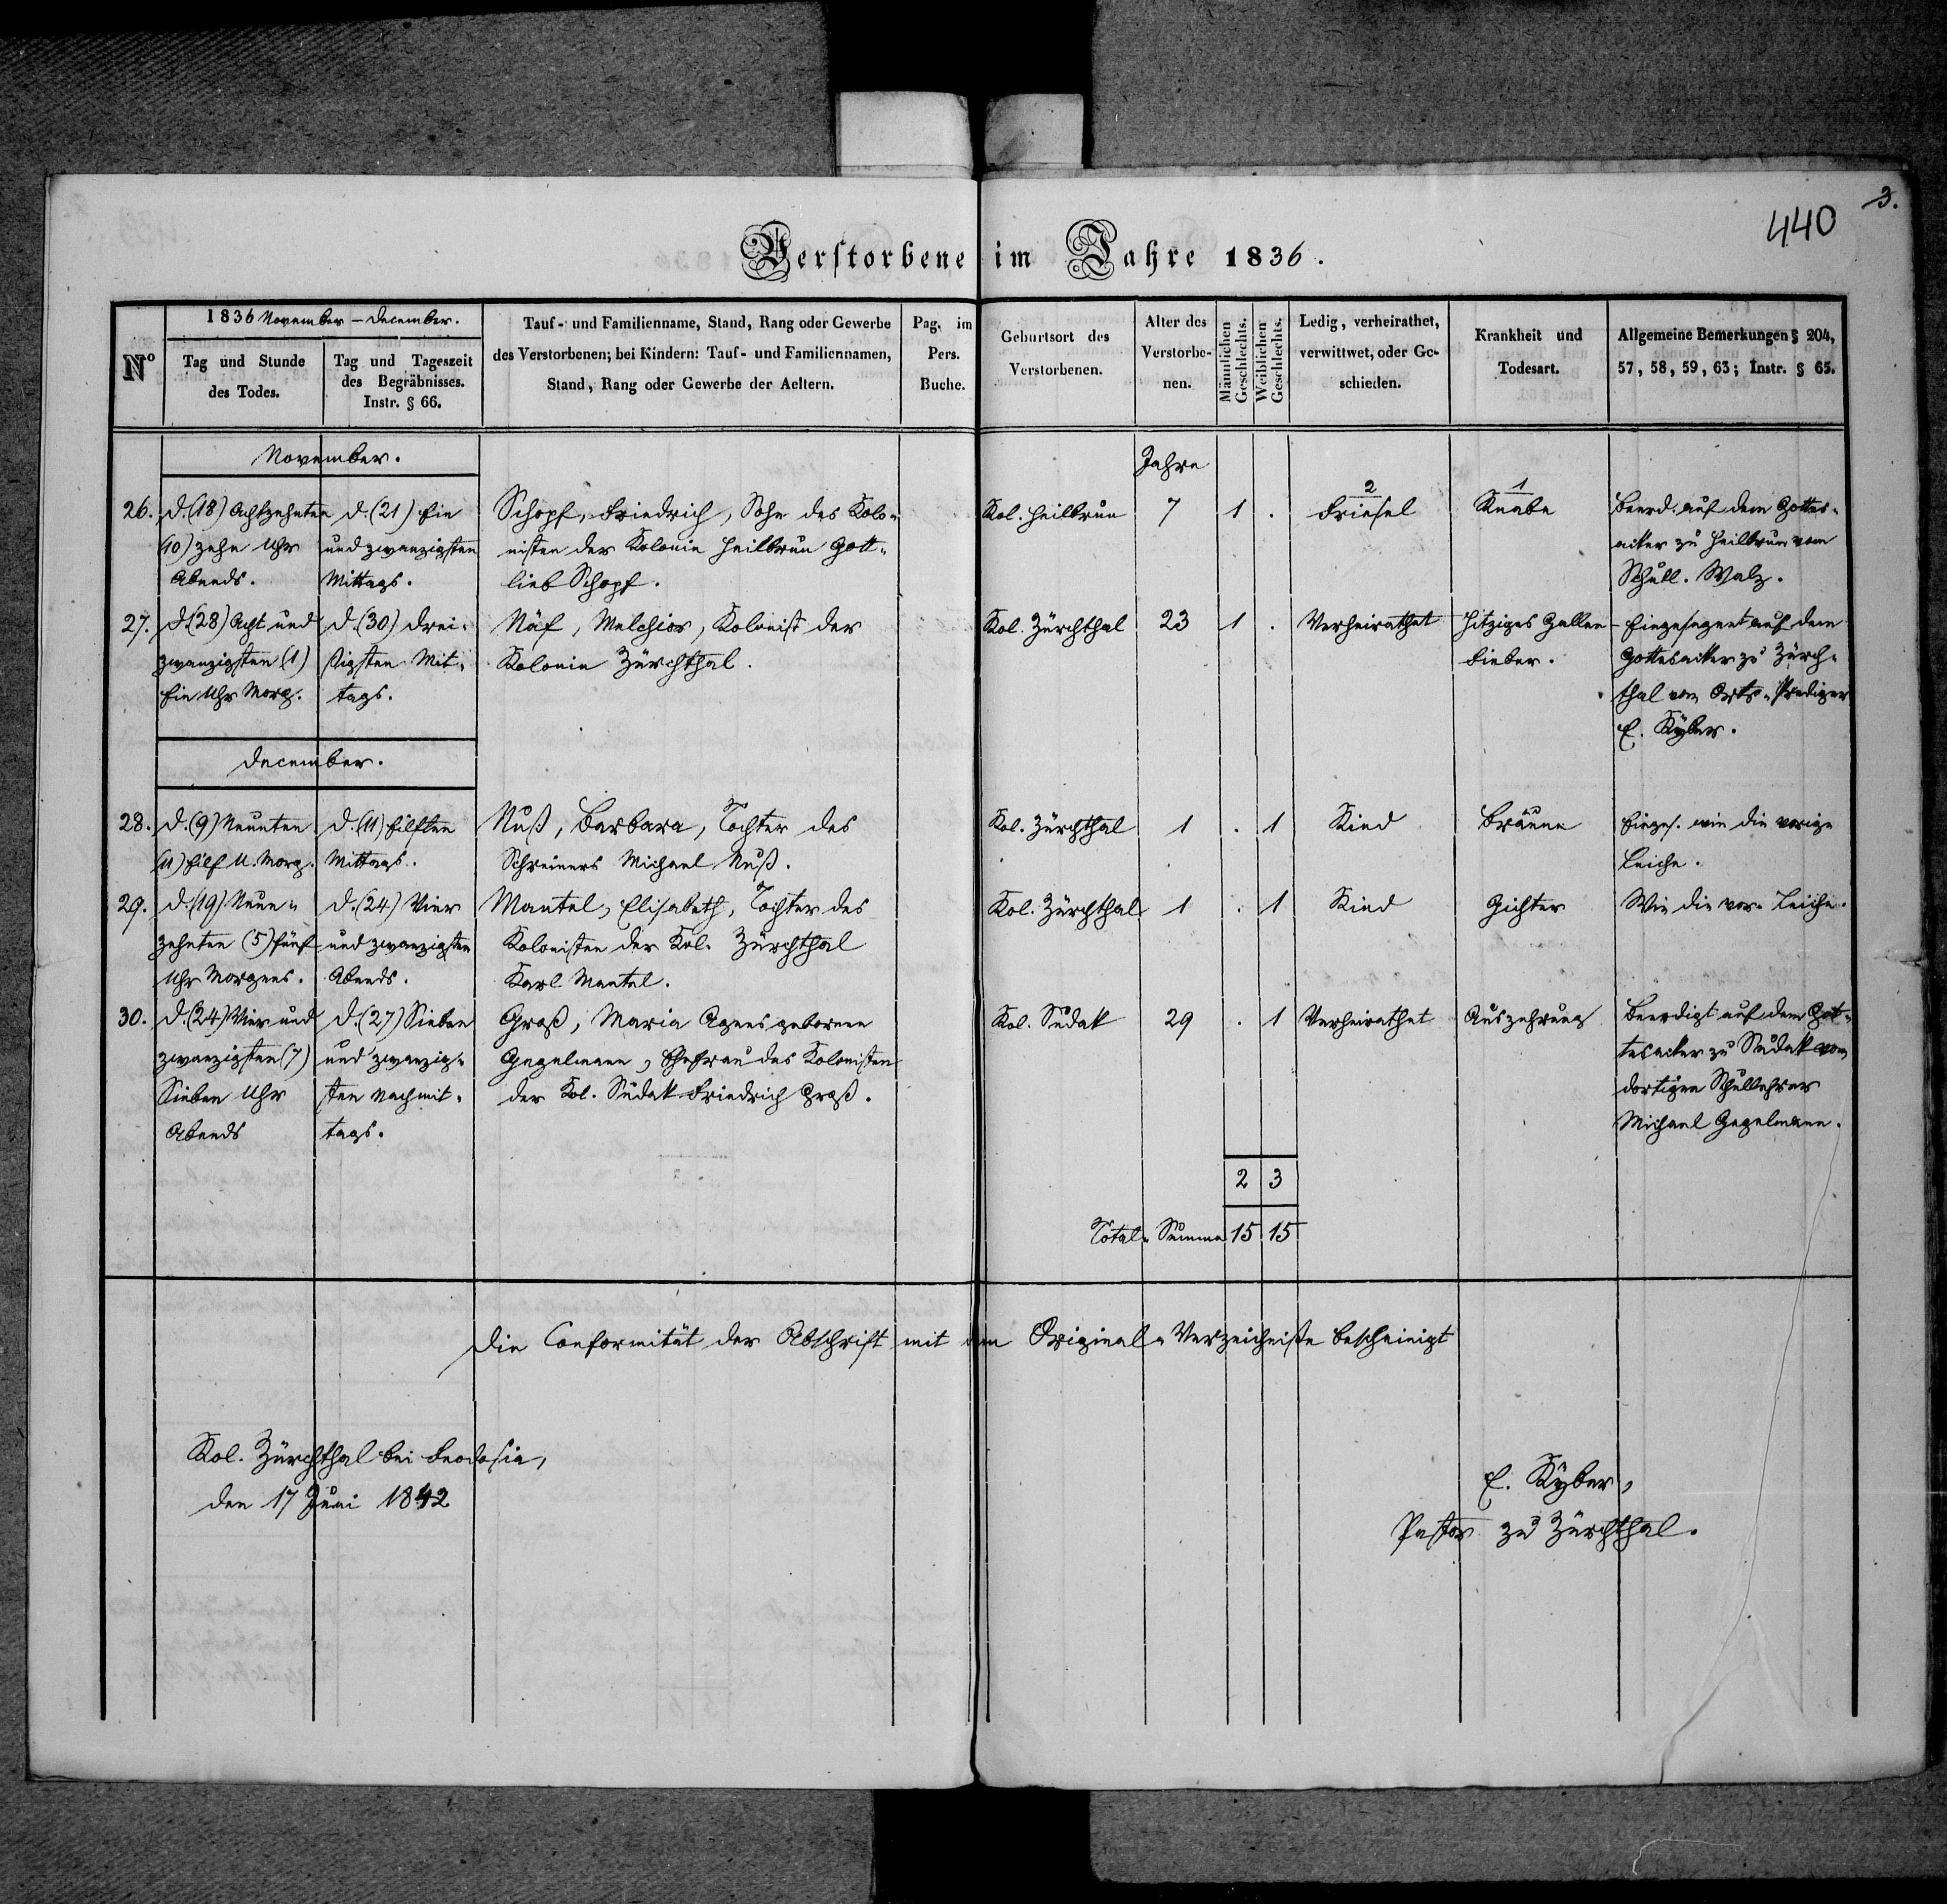 3.
440
Verstorbene im Jahre 1836.
1836 November – December.
N°
Tag und Stunde
des Todes.
Tag und Tageszeit
des Begräbnisses.
Instr. § 66.
Tauf- und Familienname, Stand, Rang oder Gewerbe
des Verstorbenen; bei Kindern: Tauf- und Familiennamen,
Stand, Rang oder Gewerbe der Aeltern.
Pag. im
Pers.
Buche.
Geburtsort des
Verstorbenen.
Alter des
Verstorbe-
nen.
Männlichen
Geschlechts.
Weiblichen
Geschlechts.
Ledig, verheirathet,
verwittwet, oder Ge-
schieden.
Krankheit und
Todesart.
Allgemeine Bemerkungen § 204,
57, 58, 59, 63; Instr. § 65.
November.
Jahre
26.
d. (18) Achtzehnten
(10) zehn Uhr
Abends.
d. (21) Ein
und zwanzigsten
Mittags.
Schopf, Friedrich, Sohn des Kolo-
nisten der Kolonie Heilbrun Gott-
lieb Schopf.
Kol. Heilbrun
7
1
.
2
Friesel
1
Knabe
Beerd. auf dem Gottes-
acker zu Heilbrun vom
Schull. Walz.
27.
d. (28) Acht und
zwanzigsten (1)
Ein Uhr Morg.
d. (30) Drei-
ßigsten Mit-
tags.
Näf, Melchior, Kolonist der
Kolonie Zürchthal.
Kol. Zürchthal
23
1
.
Verheirathet
Hitziges Gallen-
Fieber.
Eingesegnet auf dem
Gottesacker zu Zürch-
thal vom Orts-Prediger
E. Kyber.
December.
28.
d. (9) Neunten
(11) Eilf U. Morg.
d. (11) Eilften
Mittags.
Nuß, Barbara, Tochter des
Schreiners Michael Nuß.
Kol. Zürchthal
1
.
1
Kind
Bräune
Einges. wie die vorige
Leiche.
29.
d. (19) Neun-
zehnten (5) fünf
Uhr Morgens.
d. (24) Vier
und zwanzigsten
Abends.
Mantel, Elisabeth, Tochter des
Kolonisten der Kol. Zürchthal
Karl Mantel.
Kol. Zürchthal
1
.
1
Kind
Gichter
Wie die vor. Leiche.
30.
d. (24) Vier und
zwanzigsten (7)
Sieben Uhr
Abends
d. (27) Sieben
und zwanzig-
sten Nachmit-
tags.
Groß, Maria Agnes geborene
Gegelmann, Ehefrau des Kolonisten
der Kol. Sudak Friedrich Groß.
Kol. Sudak
29
.
1
Verheirathet
Auszehrung
Beerdigt auf dem Got-
tesacker zu Sudak vom
dortigen Schullehrer
Michael Gegelmann.
2 3
Total-Summa 15 15
Die Conformität der Abschrift mit dem Original-Verzeichniße bescheinigt
Kol. Zürchthal bei Feodosia,
den 17 Juni 1842
E. Kyber,
Pastor zu Zürchthal.